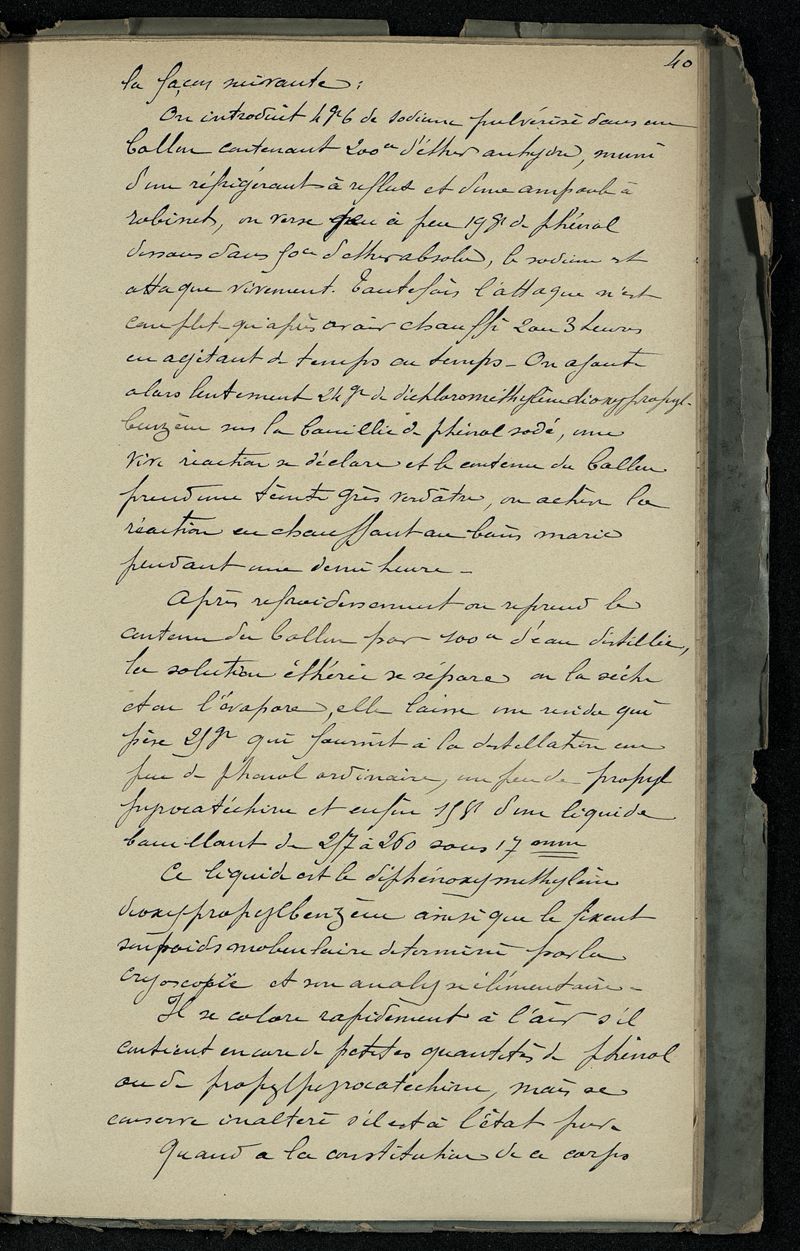 40
la façon suivante :
On introduit 4gr6 de sodium pulvérisé dans un
ballon contenant 200cc d'éther anhydre, muni
d'un réfrigérant à reflux et d'une ampoule à
robinet, on verse peu à peu 19gr de phénol
dissous dans 50cc d'éther absolu, le sodium est
attaque vivement. Toutefois l'attaque n'est
complet qu'après avoir chauffé 2 ou 3 heures
en agitant de temps en temps - On ajoute
alors lentement 24gr de dichlorométhylènedioxypropyl-
benzène sur la bouillie de phénol sodé, une
vive réaction se déclare et le contenu du ballon
prend une teinte gris verdâtre, on achève la
réaction en chauffant au bain marie
pendant une demi heure -
Après refroidissement on reprend le
contenu du ballon par 100cc d'eau distillée,
la solution éthérée se sépare on la sèche
et on l'évapore, elle laisse un residu qui
pèse 25gr qui fournit à la distillation un
peu de phénol ordinaire, un peu de propyl
pyrocatéchine et enfin 15gr d'un liquide
bouillant de 257 à 260 sous 17 mm
Ce liquide est le diphénoxyméthylène
dioxypropylbenzène ainsi que le fixent
son poids moleculaire déterminé par la
cryoscopie et son analyse élémentaire -
Il se colore rapidement à l'air s'il
contient encore de petites quantités de phénol
ou de propylpyrocatéchine, mais se
conserve inaltéré s'il est à l'état pur.
Quand a la constitution de ce corps